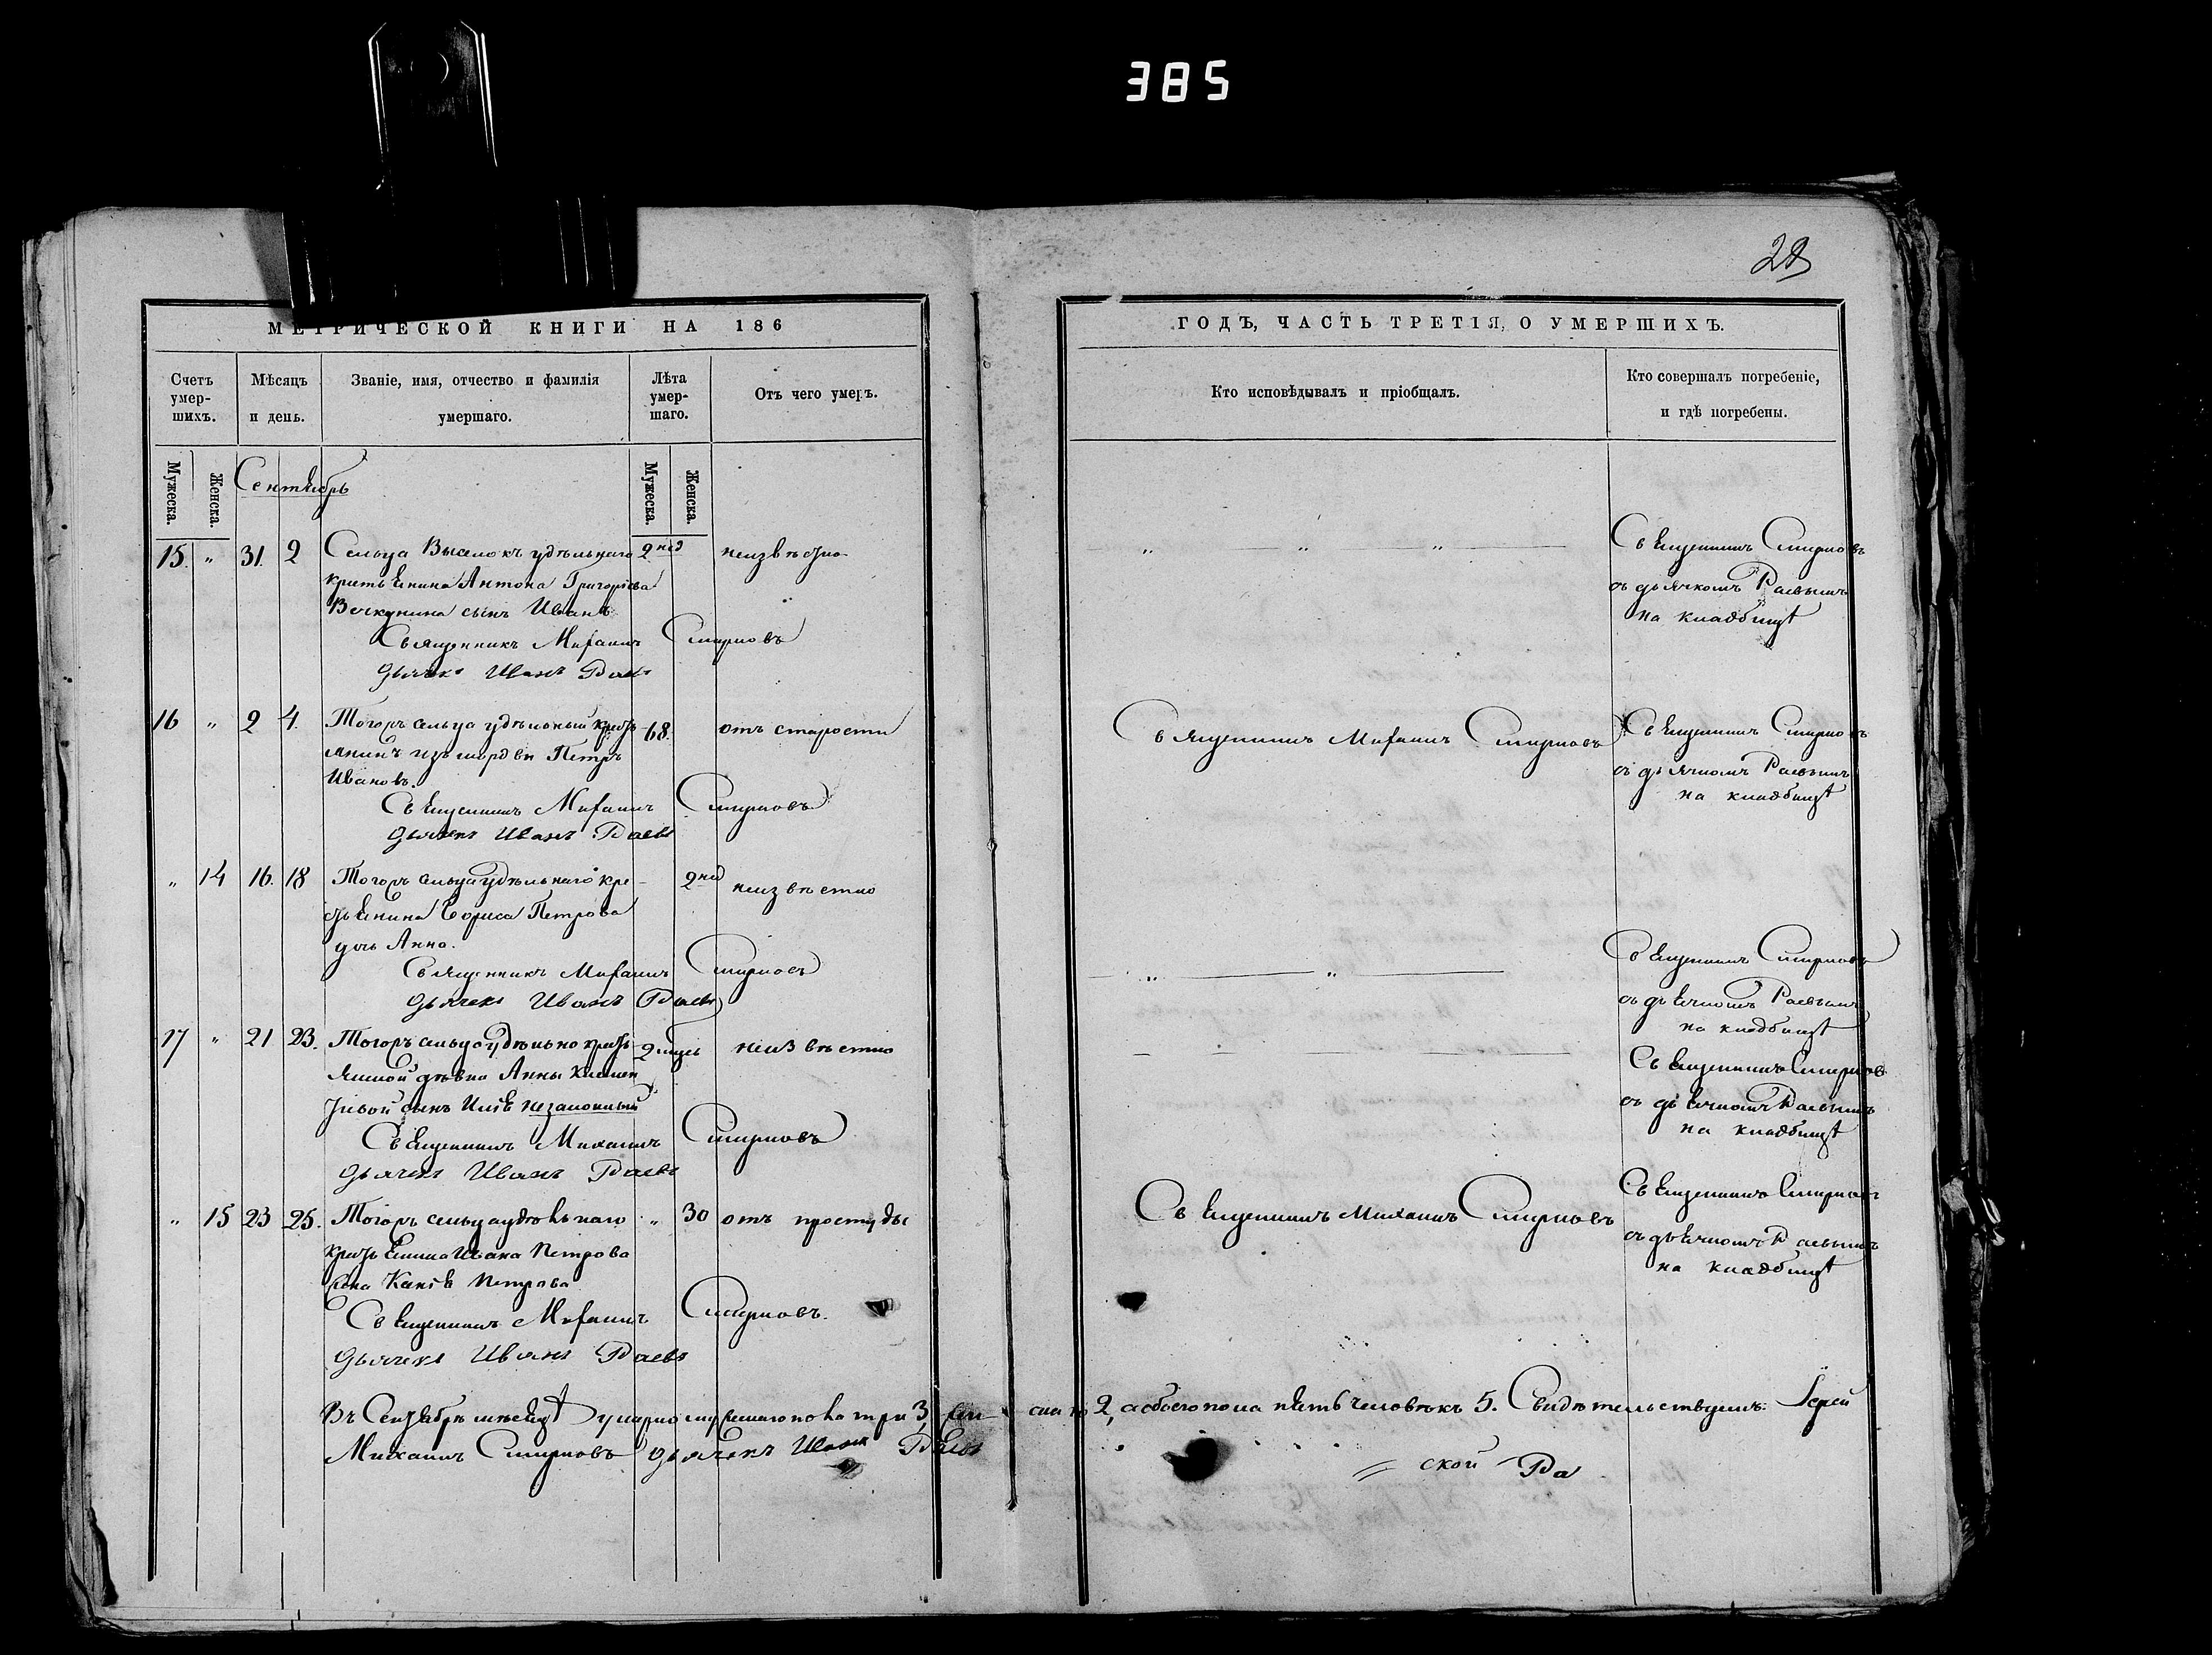 385
28
МЕТРИЧЕСКОЙ КНИГИ НА 186
ГОДЪ, ЧАСТЬ ТРЕТІЯ, О УМЕРШИХЪ.
Счетъ умер-шихъ.
Мѣсяцъ и день.
Званіе, имя, отчество и фамилія умершаго.
Лѣта умер-шаго.
Отъ чего умеръ.
Кто исповѣдывалъ и пріобщалъ.
Кто совершалъ погребеніе, и гдѣ погребены.
Мужеска. Женска.
Мужеска. Женска.
Сентябрь
15. " 31. 2 Сельца Выселокъ удѣльнаго 2 нед неизвѣстно " " " Священникъ Смирновъ
крестьянина Антона Григорьева съ дьячкомъ Раевымъ
сынъ Иванъ на кладбищѣ
Священникъ Михаилъ Смирновъ
Дьячекъ Иванъ Раевъ
16 " 2 4. Тогожъ сельца удѣльный кресть 68. отъ старости Священникъ Михаилъ Смирновъ Священникъ Смирновъ
янинъ изъ мордвы Петръ съ дьячкомъ Раевымъ
Ивановъ. на кладбищѣ
Священникъ Михаилъ Смирновъ
Дьячекъ Иванъ Раевъ
" 14 16. 18 Тогожъ сельца удѣльнаго кре- 2 нед неизвѣстно
стьянина Бориса Петрова
дочь Анна. Священникъ Смирновъ
Священникъ Михаилъ Смирновъ " "
Дьячекъ Иванъ Раевъ съ дьячкомъ Раевымъ
на кладбищѣ
17 " 21 23. Тогожъ сельца удѣльно кресть 2 неизвѣстно Священникъ Смирновъ
янской дѣвки Анны съ дьячкомъ Раевымъ
сынъ Илія незаконный на кладбищѣ
Священникъ Михаилъ Смирновъ
Дьячекъ Иванъ Раевъ
" 15 23 25. Тогожъ сельца удѣльнаго " 30 отъ простуды Священникъ Михаилъ Смирновъ Священникъ Смирновъ
крестьянина Ивана Петрова съ дьячкомъ Раевымъ
жена Петрова на кладбищѣ
Священникъ Михаилъ Смирновъ.
Дьячекъ Иванъ Раевъ
Въ Сентябрѣ мѣсяцѣ умерло мужескаго пола три 3, жен- скаго 2, а обоего пола пять человѣкъ 5. Свидѣтельствуемъ: Іерей
Михаилъ Смирновъ дьячекъ Иванъ Раевъ
ской Ра